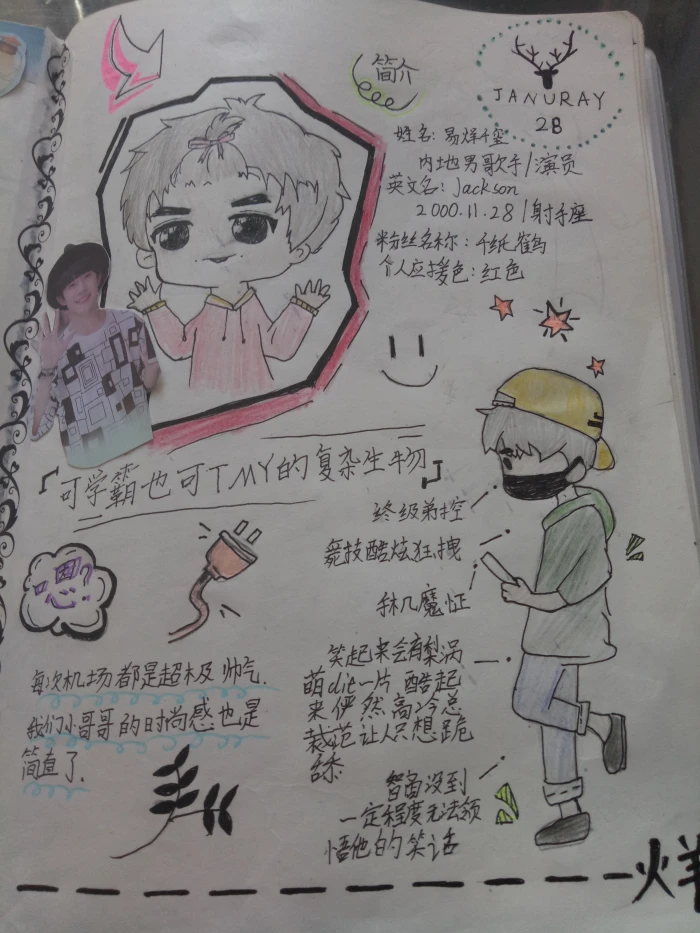 简介
JANURAY
28
姓名: 易烊千玺
内地男歌手/演员
英文名: Jackson
2000.11.28/射手座
粉丝名称: 千纸鹤
个人应援色: 红色
可学霸也可TMY的复杂生物
终级弟控
舞技酷炫狂拽
手机魔怔
笑起来会有梨涡
萌die一片 酷起
来俨然高冷总
裁范让人只想跪
舔
智商没到
一定程度无法领
悟他的笑话
嗯?
每次机场都是超极帅气.
我们小哥哥的时尚感也是
简直了.
烊